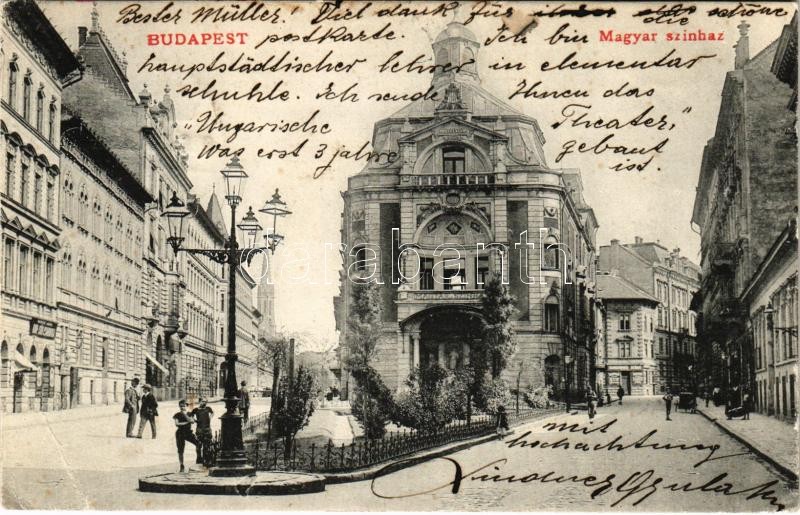 Bester Müller! Viel dank für die schöne
BUDAPEST
postkarte. Ich bin
Magyar szinhaz
hauptstädtischer lehrer in elementar
schuhle. Ich sende Ihnen das
"Ungarische Theater,"
was erst 3 jahre gebaut
ist.
darabanth
mit
hochachtung
Gyula